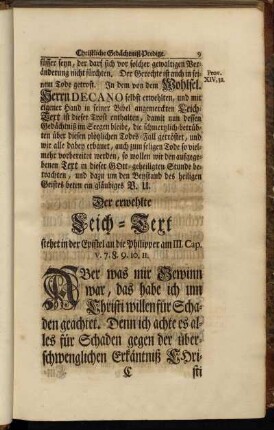 Christliche Gedächtniß-Predigt. 9
süsser seyn, der darf sich vor solcher gewaltigen Ver-
änderung nicht fürchten. Der Gerechte ist auch in sei-
nem Tode getrost. In dem von dem Wohlsel.
Herrn DECANO selbst erwehlten, und mit
eigener Hand in seiner Bibel angemerckten Leich-
Text ist dieser Trost enthalten, damit nun dessen
Gedächtniß im Seegen bleibe, die schmertzlich-betrüb-
ten über diesen plötzlichen Todes-Fall getröstet, und
wir alle dabey erbauet, auch zum seligen Tode so viel-
mehr vorbereitet werden, so wollen wir den aufgegebe-
nen Text in dieser Gott-geheiligten Stunde be-
trachten, und dazu um den Beystand des heiligen
Geistes beten ein gläubiges V. U.
Prov.
XIV, 32.
Der erwehlte
Leich-Text
stehet in der Epistel an die Philipper am III. Cap.
v. 7. 8. 9. 10. 11.
ABer was mir Gewinn
war, das habe ich um
Christi willen für Scha-
den geachtet. Denn ich achte es al-
les für Schaden gegen der über-
schwenglichen Erkäntniß CHri-
C sti